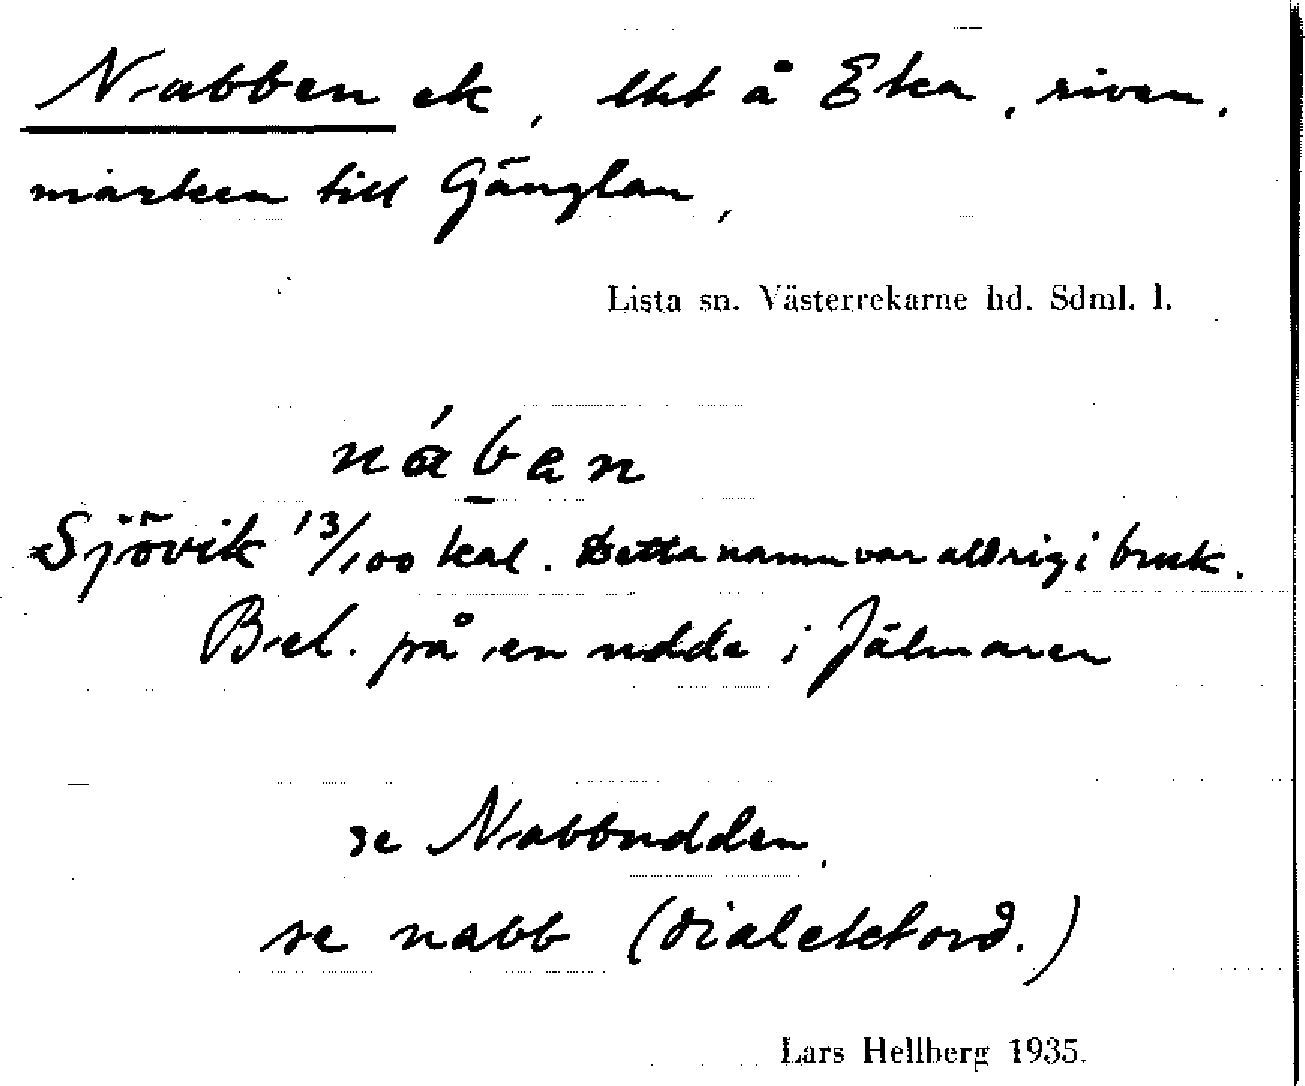 Nabben ek, lht å Eka, riven,
marken till Gänglan,
Lista sn. Västerrekarne hd. Sdml. l.
náb̲an
Sjövik 13/100 kal. Detta namn var aldrig i bruk.
Bel. på en udde i Jälmaren
se Nabbudden,
se nabb (dialektord.)
Lars Hellberg 1935.